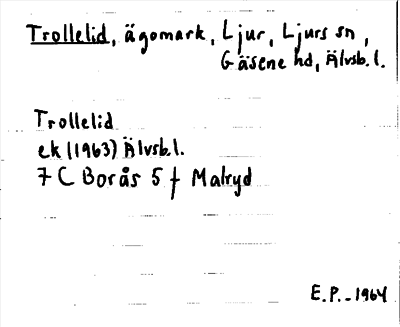 Trollelid, ägomark, Ljur, Ljurs sn,
Gäsene hd, Älvsb. l.
Trollelid
ek (1963) Älvsb. l.
7 C Borås 5 f Malryd
E. P. - 1964